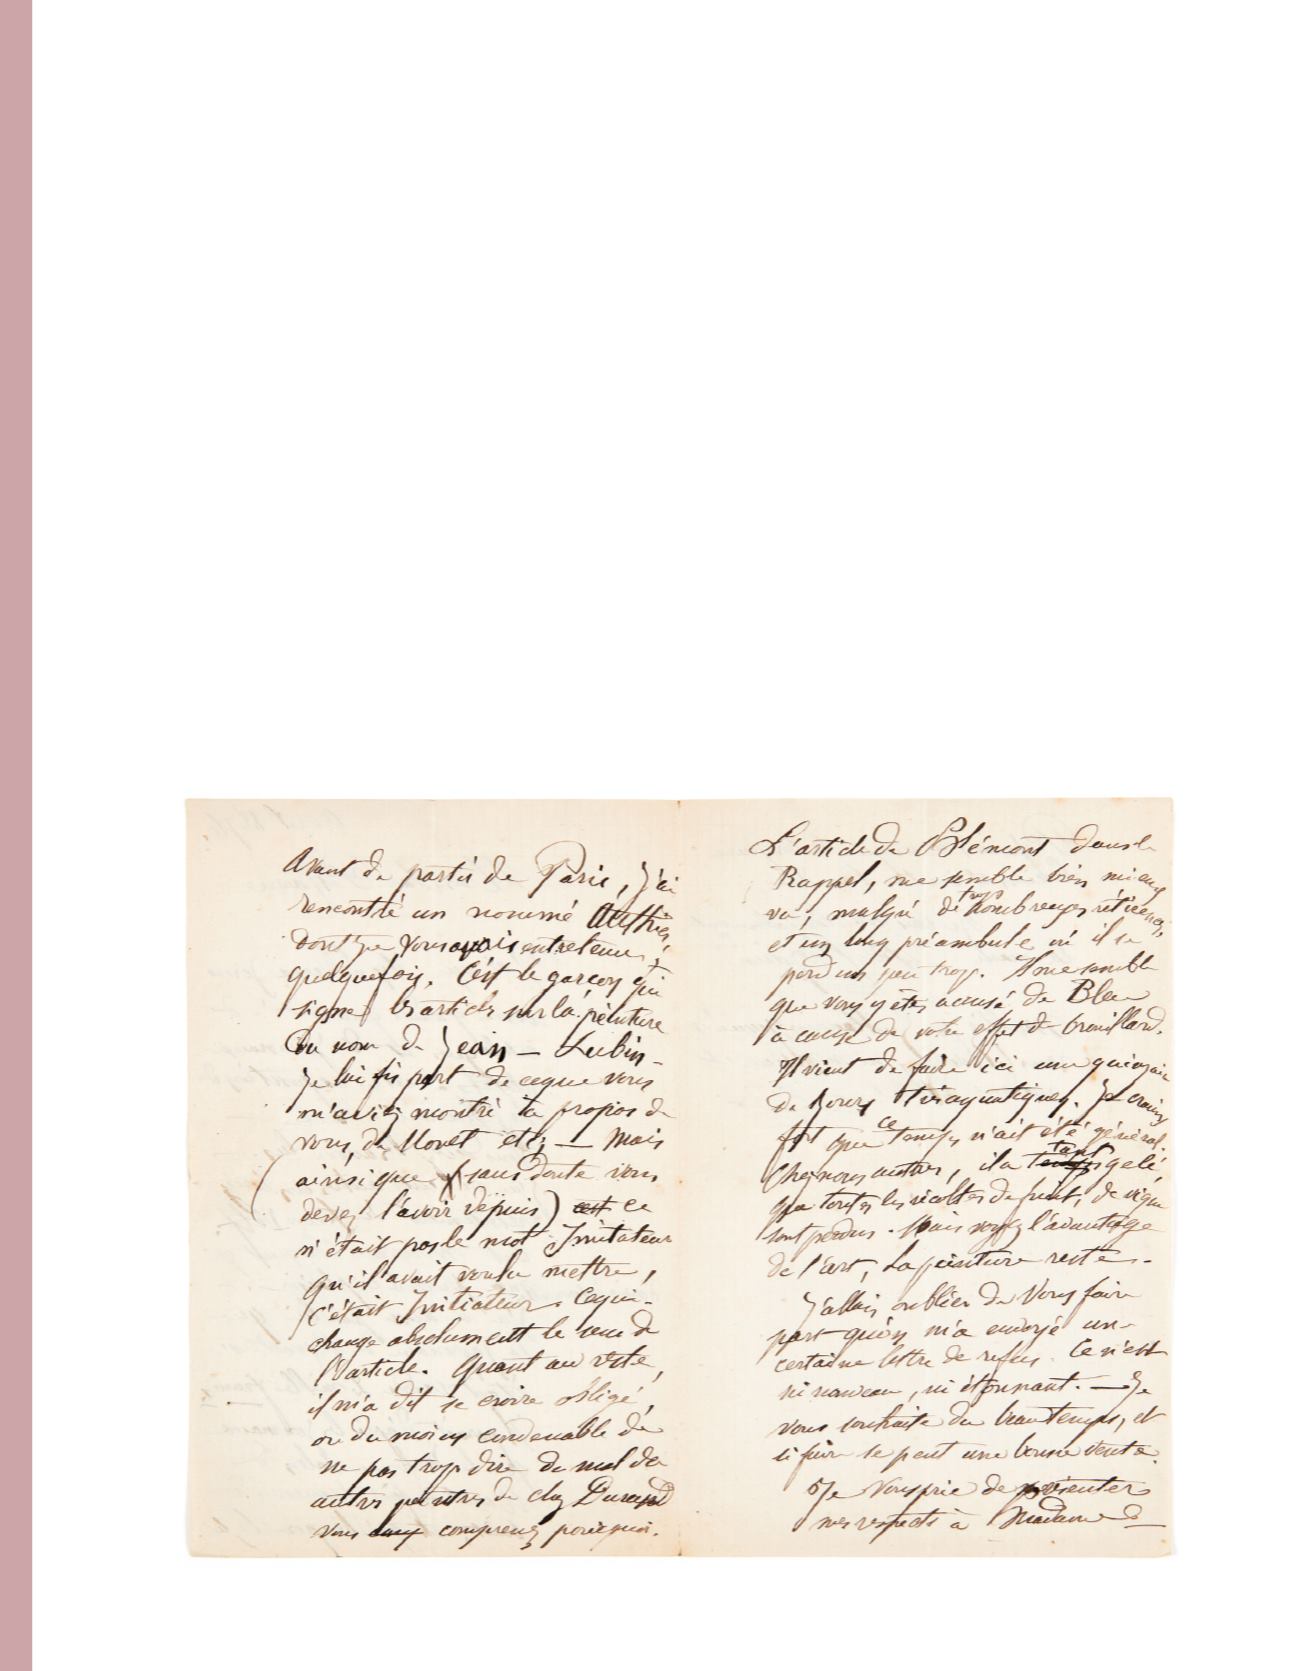 Avant de partir de Paris, j'ai
rencontré un nommé
dont je vous avais entretenu
quelquefois. C'est le garçon qui
signe les articles sur la peinture
du nom de Jean-Lubin –
Je lui fis part de ce que vous
m'aviez montré à propos de
vous, de Monet etc; — Mais
ainsi que (sans doute vous
devez l'avoir depuis) ce
n'était pas le mot Imitateur
qu'il avait voulu mettre,
c'était Initiateur. Ce qui
change absolument le sens de
l'article. Quant au reste,
il m'a dit se croire obligé,
ou du moins convenable de
ne pas trop dire de mal des
autres peintres de chez Durand
vous comprenez pourquoi.
L'article de Blémont dans le
Rappel, me semble bien mieux
vu, malgré de trop nombreuses réticences,
et un long préambule où il se
perd un peu trop. Il me semble
que vous y êtes accusé de Bleu
à cause de votre effet de brouillard.
Il vient de faire ici une quinzaine
de jours Je crains
fort que ce temps n'ait été général.
Chez nous autres, il a tant gelé
que toutes les récoltes de fruits, de vigne
sont perdus. Mais voyez l'avantage
de l'art, La peinture reste.
J'allais oublier de vous faire
part qu'on m'a envoyé une
certaine lettre de refus. Ce n'est
ni nouveau, ni étonnant. — Je
vous souhaite du beau temps, et
si faire se peut une bonne vente.
Je vous prie de présenter
mes respects à Madame